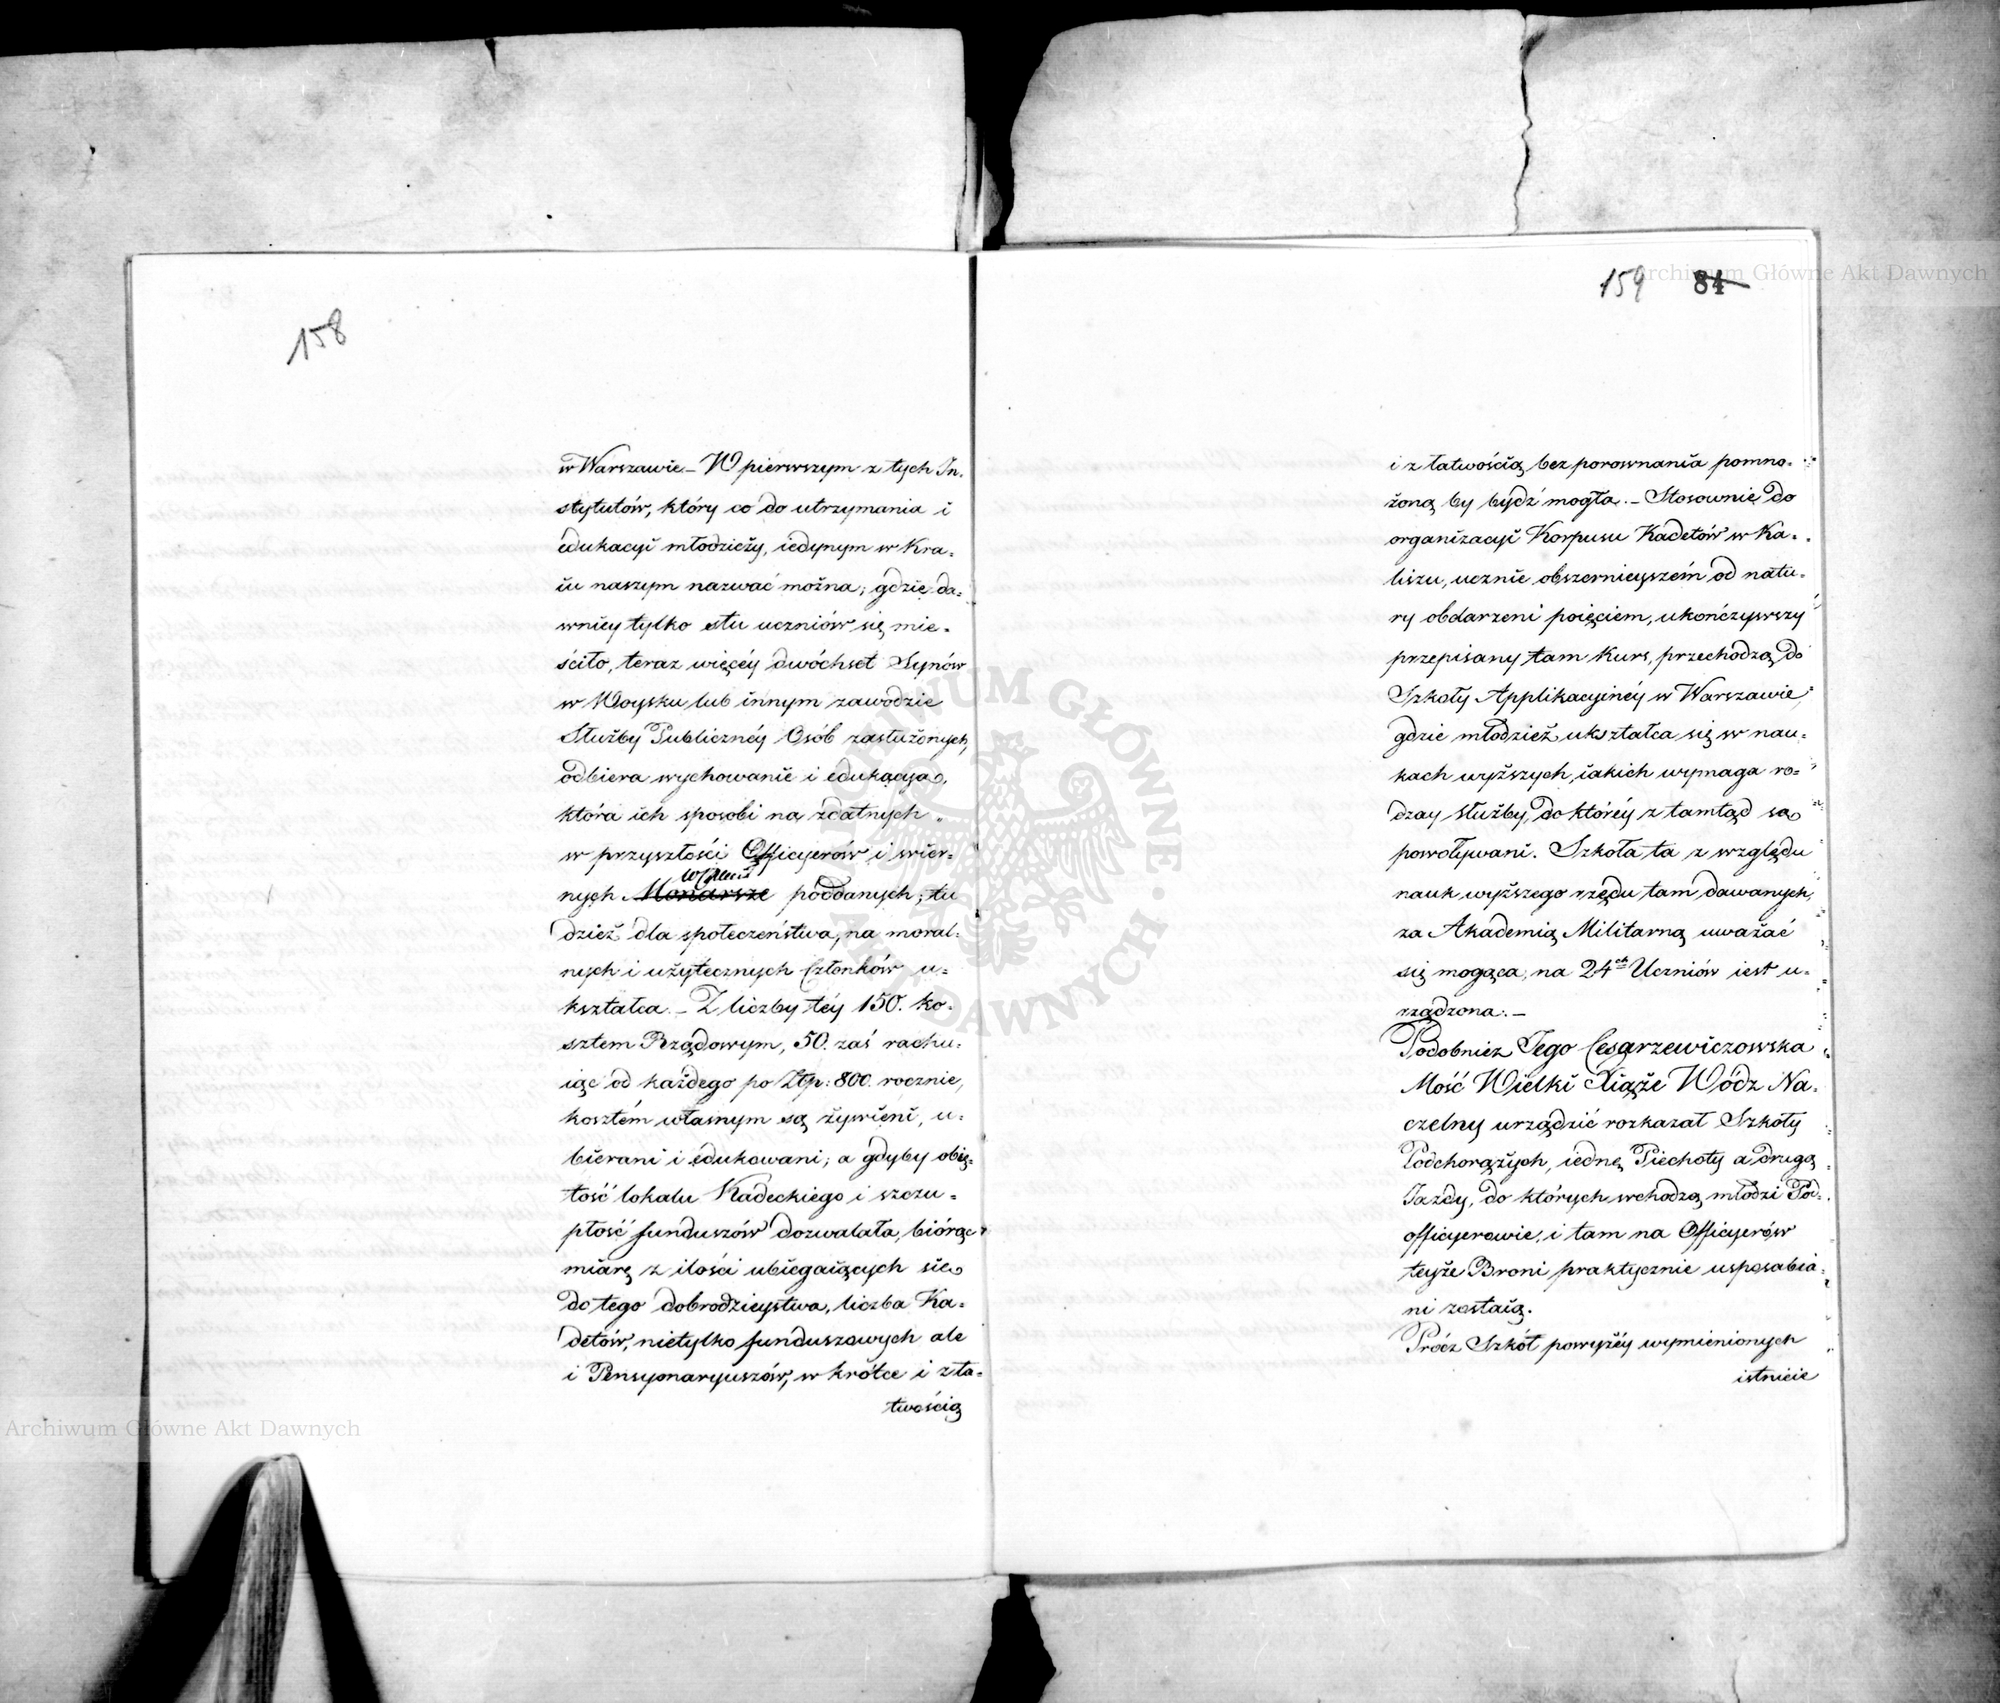 158
w Warszawie – W pierwszym z tych In-
stytutów, który co do utrzymania i
edukacyi młodzieży, iedynym w Kra-
iu naszym nazwać można; gdzie da-
wniey tylko stu uczniów się mie-
ściło, teraz więcéy dwóchset Synów
w Woysku lub innym zawodzie
Służby Publicznéy Osób zasłużonych,
odbiera wychowanie i edukacyą,
która ich sposobi na zdatnych
w przyszłości Officyerów i wier-
nych Monarsze poddanych; tu
dzież dla społeczeństwa, na moral-
nych i użytecznych Członków u-
kształca. – Z liczby téy 150. ko-
sztem Rządowym, 50. zaś rachu-
iąc od każdego po Złp: 800. rocznie,
kosztem własnym są żywieni, u-
bierani i edukowani; a gdyby obię-
tość lokalu Kadeckiego i szczu-
płość funduszów dozwalała, biórąc
miarę z ilości ubiegaiących się
do tego dobrodzieystwa, liczba Ka-
detów, nietylko funduszowych ale
i Pensyonaryuszów, w krótce i z ła-
twością
159 84
i z łatwością bez porownania pomno-
żoną by bydź mogła. – Stosownie do
organizacyi Korpusu Kadetów w Ka-
liszu, ucznie obszernieyszém od natu-
ry obdarzeni poięciem, ukończywszy
przepisany tam Kurs, przechodzą do
Szkoły Applikacyinéy w Warszawie,
gdzie młodzież ukształca się w nau-
kach wyższych, iakich wymaga ro-
dzay służby, do któréy z tamtąd są
powoływani. Szkoła ta z względu
nauk wyższego rzędu tam dawanych,
za Akademią Militarną uważać
się mogąca, na 24ch Uczniów iest u-
rządzona. –
Podobnież Jego Cesarzewiczowska
Mość Wielki Xiąże Wódz Na-
czelny urządzić rozkazał Szkoły
Podchorążych, iednę Piechoty a drugą
Jazdy, do których wchodzą młodzi Pod-
officyerowie, i tam na Officyerów
teyże Broni praktycznie usposabia-
ni zostaią.
Prócz Szkół powyżéy wymienionych
istnieie
Archiwum Główne Akt Dawnych
Archiwum Główne Akt Dawnych
ARCHIWUM GŁÓWNE AKT DAWNYCH